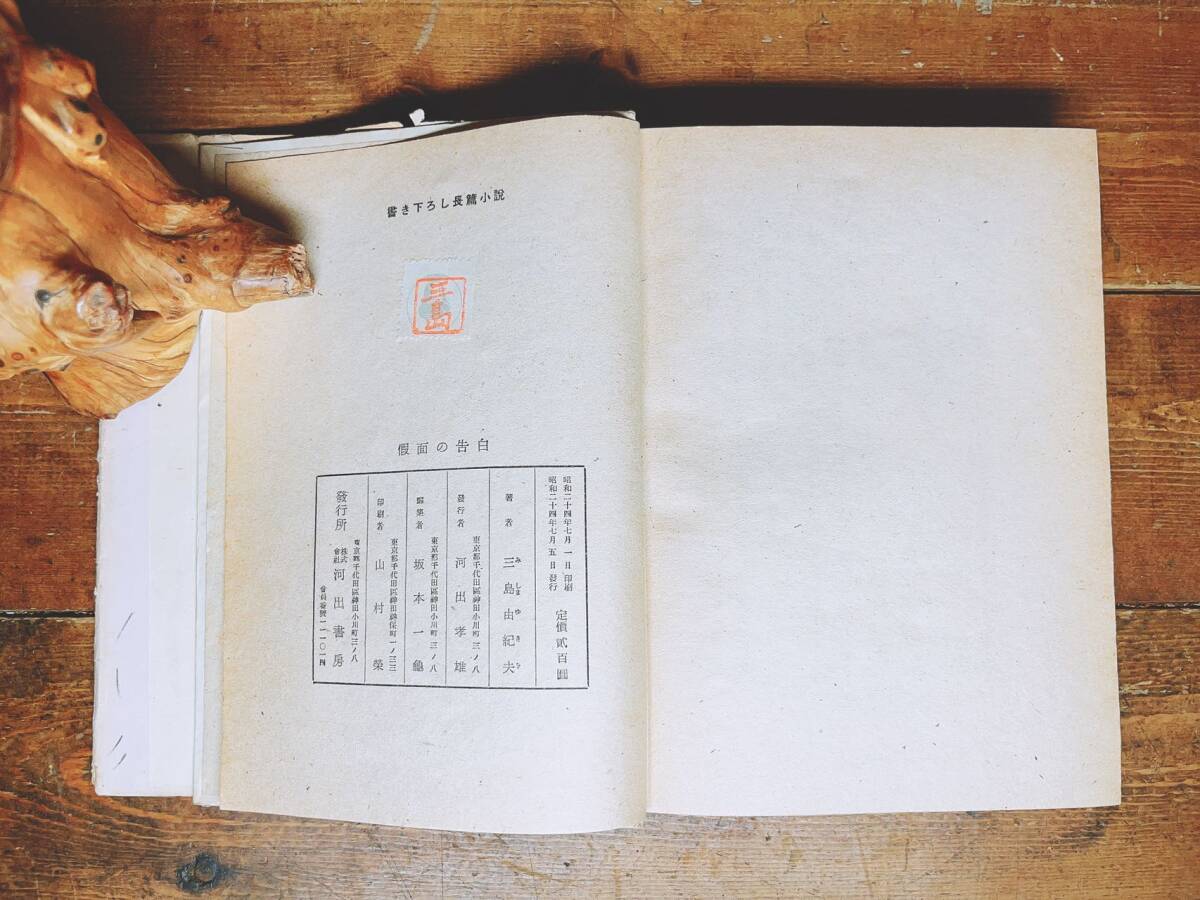 書き下ろし長篇小說
三島
假面の告白
昭和二十四年七月一日印刷
昭和二十四年七月五日發行
定價貳百圓
著者 三島由紀夫
みしまゆきを
發行者 東京都千代田區神田小川町三ノ八
河出孝雄
編集者 東京都千代田區神田小川町三ノ八
坂本一龜
印刷者 東京都千代田區神田神保町一ノ三三
山村榮
發行所 東京都千代田區神田小川町三ノ八
株式會社 河出書房
會員番號一二一〇一四